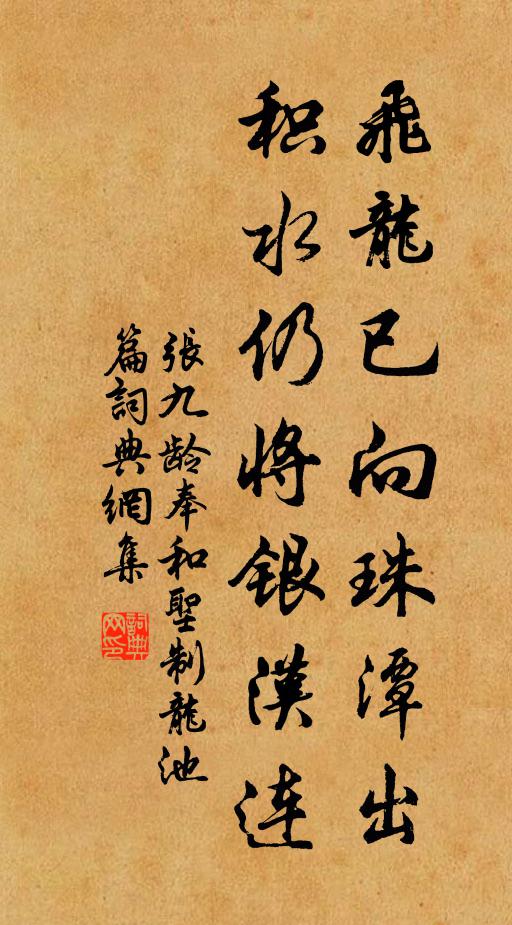 飛龍已向珠潭出
积水仍將銀漢连
張九龄奉和聖制龍池
篇詞典網集
詞典
网印